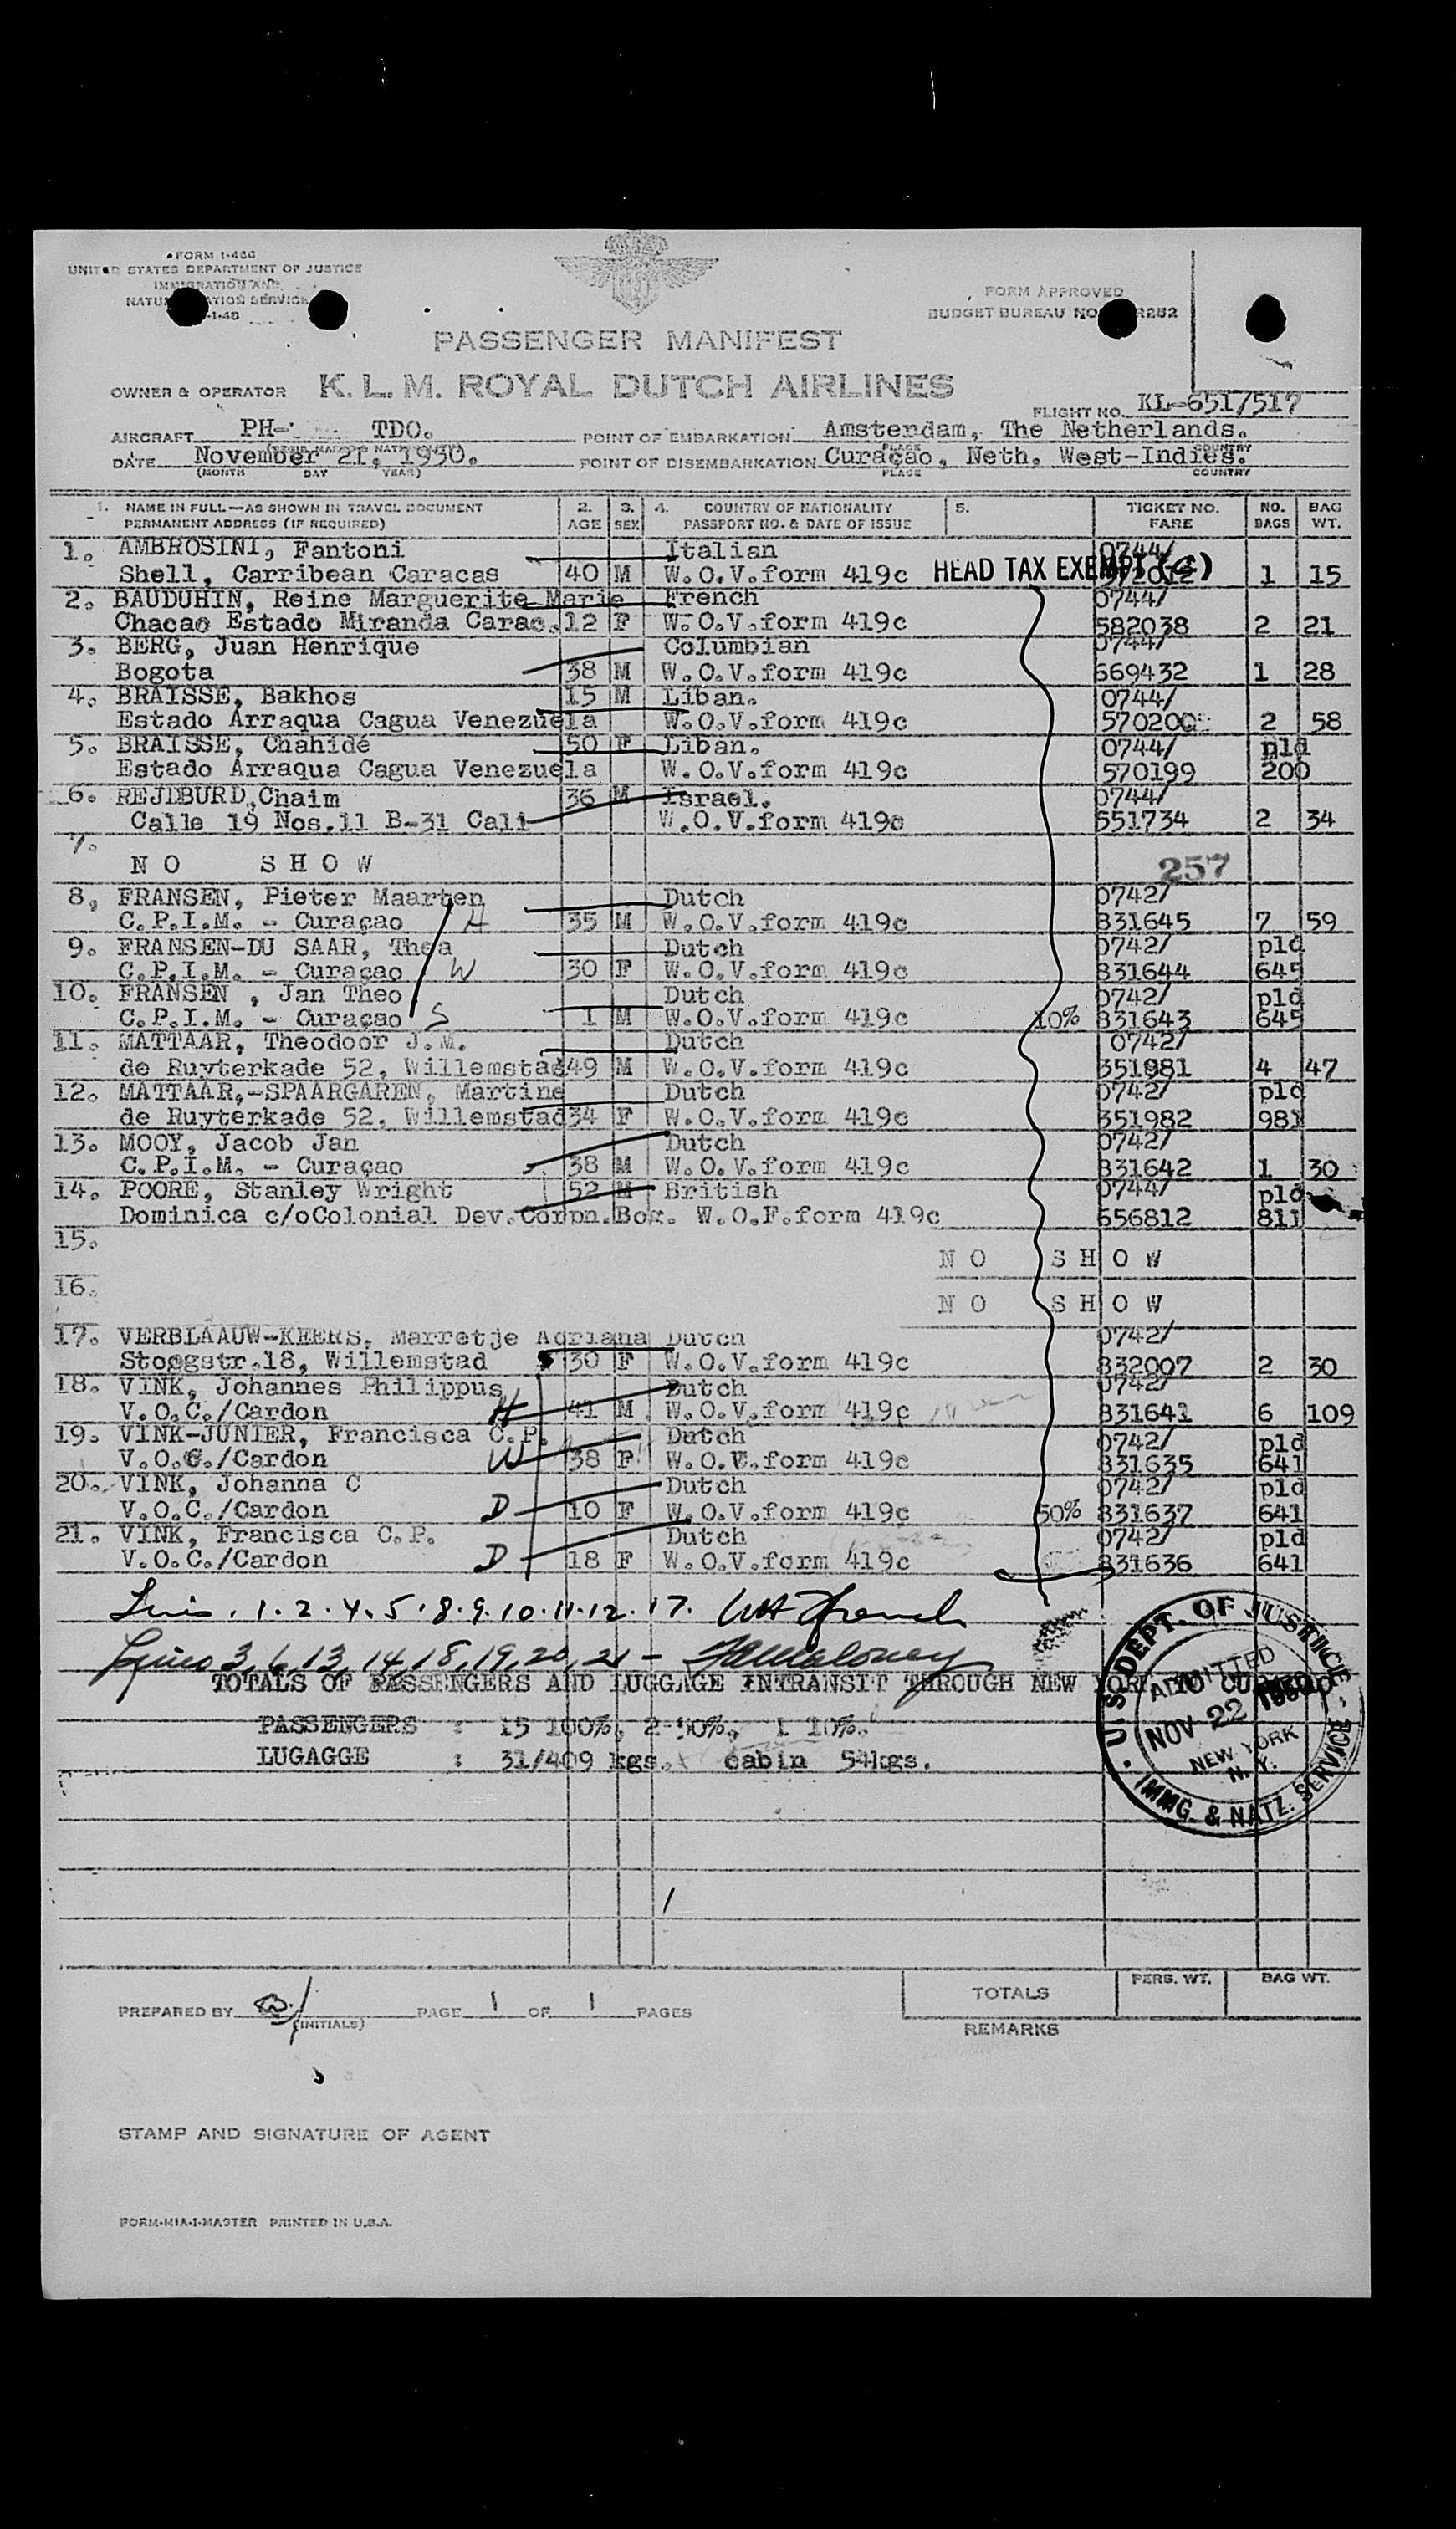 FORM I-466
UNITED STATES DEPARTMENT OF JUSTICE
IMMIGRATION AND
SERVICE
-1-48
FORM APPROVED
BUDGET BUREAU NO.
PASSENGER MANIFEST
OWNER & OPERATOR K. L. M. ROYAL DUTCH AIRLINES
FLIGHT NO. KL-651/517
AIRCRAFT PH- TDO. POINT OF EMBARKATION Amsterdam, The Netherlands.
DATE November 21, 1950. POINT OF DISEMBARKATION Curaçao, Neth. West-Indies.
(MONTH DAY YEAR) PLACE COUNTRY
1. NAME IN FULL—AS SHOWN IN TRAVEL DOCUMENT 2. 3. 4. COUNTRY OF NATIONALITY 5. TICKET NO. NO. BAG
PERMANENT ADDRESS (IF REQUIRED) AGE SEX PASSPORT NO. & DATE OF ISSUE FARE BAGS WT.
1. AMBROSINI, Fantoni Italian 0744/
Shell, Carribean Caracas 40 M W.O.V.form 419c HEAD TAX EXEMPT 1 15
2. BAUDUHIN, Reine Marguerite Marie French 0744/
Chacao Estado Miranda Carac. 12 F W.O.V.form 419c 582038 2 21
3. BERG, Juan Henrique Columbian 0744/
Bogota 38 M W.O.V.form 419c 669432 1 28
4. BRAISSE, Bakhos 15 M Liban. 0744/
Estado Arraqua Cagua Venezuela W.O.V.form 419c 570200 2 58
5. BRAISSE, Chahidé 50 F Liban. 0744/ pld
Estado Arraqua Cagua Venezuela W.O.V.form 419c 570199 200
6. REJDBURD,Chaim 36 M Israel. 0744/
Calle 19 Nos.11 B-31 Cali W.O.V.form 419c 551734 2 34
7.
NO SHOW 257
8, FRANSEN, Pieter Maarten Dutch 0742/
C.P.I.M. - Curaçao H 35 M W.O.V.form 419c 831645 7 59
9. FRANSEN-DU SAAR, Thea Dutch 0742/ pld
C.P.I.M. - Curaçao W 30 F W.O.V.form 419c 831644 645
10. FRANSEN , Jan Theo Dutch 0742/ pld
C.P.I.M. - Curaçao S 1 M W.O.V.form 419c 10% 831643 645
11. MATTAAR, Theodoor J.M. Dutch 0742/
de Ruyterkade 52, Willemstad 49 M W.O.V.form 419c 351981 4 47
12. MATTAAR,-SPAARGAREN, Martine Dutch 0742/ pld
de Ruyterkade 52, Willemstad 34 F W.O.V.form 419c 351982 981
13. MOOY, Jacob Jan Dutch 0742/
C.P.I.M. - Curaçao 38 M W.O.V.form 419c 831642 1 30
14. POORE, Stanley Wright 52 M British 0744/ pld
Dominica c/oColonial Dev.Corpn.Box. W.O.F.form 419c 656812 811
15.
NO SHOW
16.
NO SHOW
17. VERBLAAUW-KEERS, Marretje Adriana Dutch 0742/
Stoogstr.18, Willemstad 30 F W.O.V.form 419c 832007 2 30
18. VINK, Johannes Philippus Dutch 0742/
V.O.C./Cardon H 41 M W.O.V.form 419c 831641 6 109
19. VINK-JUNIER, Francisca C.P. Dutch 0742/ pld
V.O.C./Cardon W 38 F W.O.V.form 419c 831635 641
20. VINK, Johanna C Dutch 0742/ pld
V.O.C./Cardon D 10 F W.O.V.form 419c 50% 831637 641
21. VINK, Francisca C.P. Dutch 0742/ pld
V.O.C./Cardon D 18 F W.O.V.form 419c 831636 641
1.2.4.5.8.9.10.11.12.17.
Lines 3,6,13,14,18,19,20,21 -
TOTALS OF PASSENGERS AND LUGGAGE INTRANSIT THROUGH NEW YORK TO CURACAO
PASSENGERS : 15 100%, 2-50%, 1 10%.
LUGAGGE : 31/409 kgs. cabin 54kgs.
U.S. DEPT. OF JUSTICE
ADMITTED
NOV 22 1950
NEW YORK
N.Y.
IMMG. & NATZ. SERVICE
PERS. WT. BAG WT.
TOTALS
PREPARED BY (INITIALS) PAGE 1 OF 1 PAGES
REMARKS
STAMP AND SIGNATURE OF AGENT
FORM-MIA-1-MASTER PRINTED IN U.S.A.